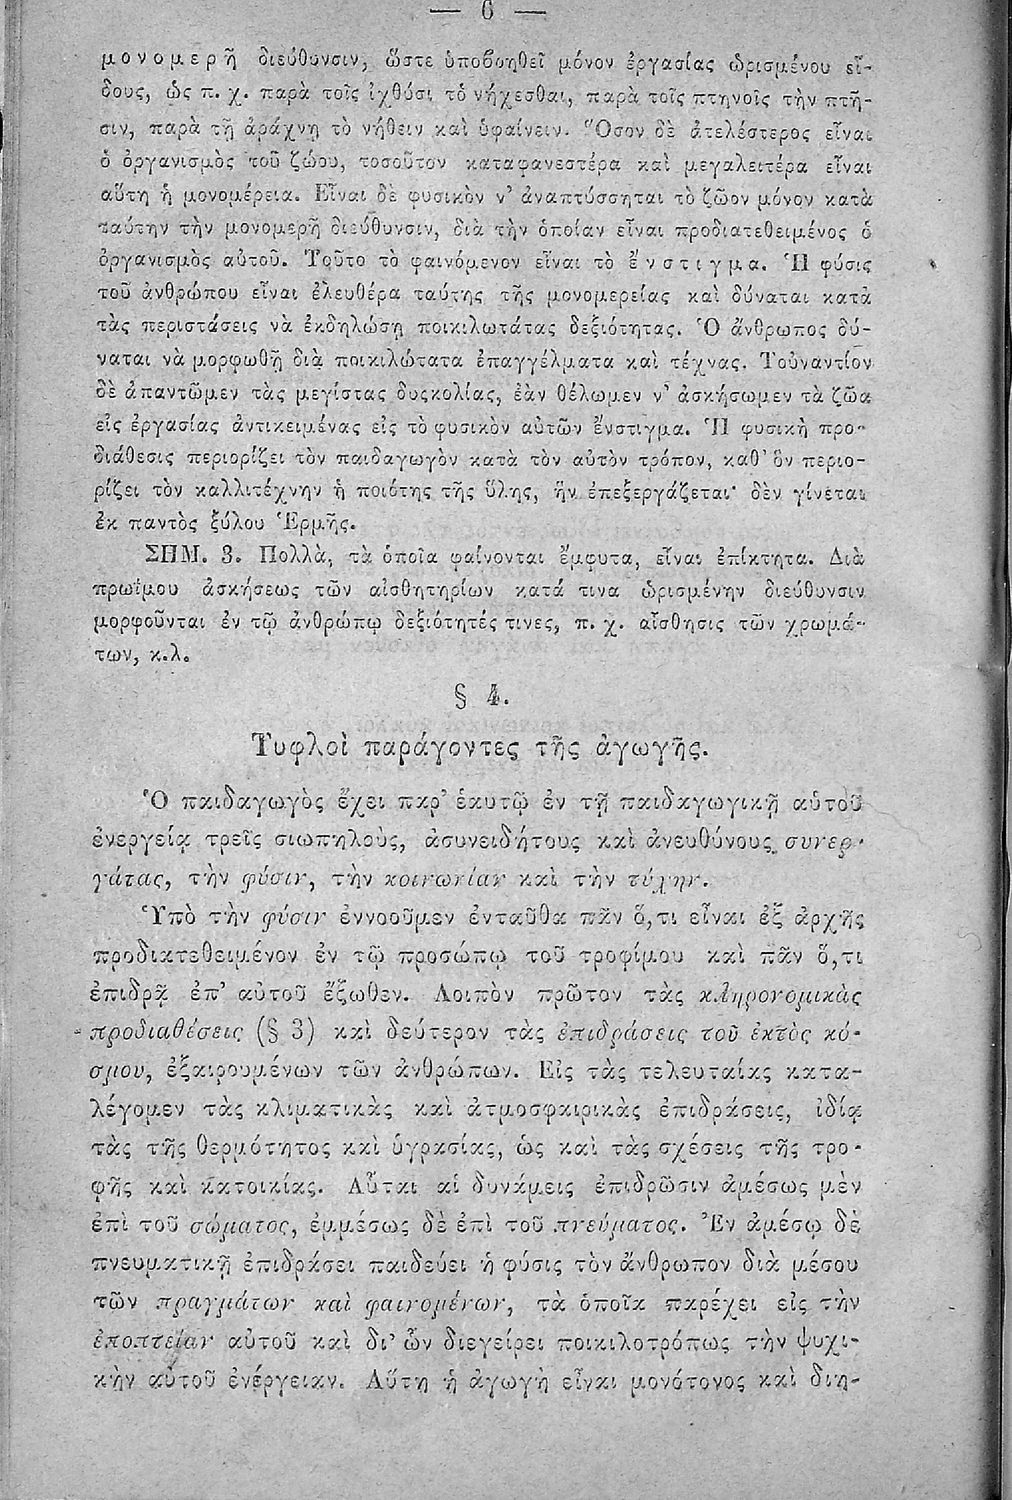 — 6 —
μονομερῆ διεύθυνσιν, ὥστε ὑποβοηθεῖ μόνον ἐργασίας ὡρισμένου εἴ-
δους, ὡς π. χ. παρὰ τοῖς ἰχθύσι τὸ νήχεσθαι, παρὰ τοῖς πτηνοῖς τὴν πτῆ-
σιν, παρὰ τῇ ἀράχνῃ τὸ νήθειν καὶ ὑφαίνειν. Ὅσον δὲ ἀτελέστερος εἶναι
ὁ ὀργανισμὸς τοῦ ζώου, τοσοῦτον καταφανεστέρα καὶ μεγαλειτέρα εἶναι
αὕτη ἡ μονομέρεια. Εἶναι δὲ φυσικὸν ν’ ἀναπτύσσηται τὸ ζῶον μόνον κατὰ
ταύτην τὴν μονομερῆ διεύθυνσιν, διὰ τὴν ὁποίαν εἶναι προδιατεθειμένος ὁ
ὀργανισμὸς αὐτοῦ. Τοῦτο τὸ φαινόμενον εἶναι τὸ ἔνστιγμα. Ἡ φύσις
τοῦ ἀνθρώπου εἶναι ἐλευθέρα ταύτης τῆς μονομερείας καὶ δύναται κατὰ
τὰς περιστάσεις νὰ ἐκδηλώσῃ ποικιλωτάτας δεξιότητας. Ὁ ἄνθρωπος δύ-
ναται νὰ μορφωθῇ διὰ ποικιλώτατα ἐπαγγέλματα καὶ τέχνας. Τοὐναντίον
δὲ ἀπαντῶμεν τὰς μεγίστας δυσκολίας, ἐὰν θέλωμεν ν’ ἀσκήσωμεν τὰ ζῶα
εἰς ἐργασίας ἀντικειμένας εἰς τὸ φυσικὸν αὐτῶν ἔνστιγμα. Ἡ φυσικὴ προ-
διάθεσις περιορίζει τὸν παιδαγωγὸν κατὰ τὸν αὐτὸν τρόπον, καθ’ ὃν περιο-
ρίζει τὸν καλλιτέχνην ἡ ποιότης τῆς ὕλης, ἣν ἐπεξεργάζεται· δὲν γίνεται
ἐκ παντὸς ξύλου Ἑρμῆς.
ΣΗΜ. 3. Πολλὰ, τὰ ὁποῖα φαίνονται ἔμφυτα, εἶναι ἐπίκτητα. Διὰ
πρωΐμου ἀσκήσεως τῶν αἰσθητηρίων κατά τινα ὡρισμένην διεύθυνσιν
μορφοῦνται ἐν τῷ ἀνθρώπῳ δεξιότητές τινες, π. χ. αἴσθησις τῶν χρωμά-
των, κ.λ.
§ 4.
Τυφλοὶ παράγοντες τῆς ἀγωγῆς.
Ὁ παιδαγωγὸς ἔχει παρ’ ἑαυτῷ ἐν τῇ παιδαγωγικῇ αὑτοῦ
ἐνεργείᾳ τρεῖς σιωπηλοὺς, ἀσυνειδήτους καὶ ἀνευθύνους συνερ-
γάτας, τὴν φύσιν, τὴν κοινωνίαν καὶ τὴν τύχην.
Ὑπὸ τὴν φύσιν ἐννοοῦμεν ἐνταῦθα πᾶν ὅ,τι εἶναι ἐξ ἀρχῆς
προδιατεθειμένον ἐν τῷ προσώπῳ τοῦ τροφίμου καὶ πᾶν ὅ,τι
ἐπιδρᾷ ἐπ’ αὐτοῦ ἔξωθεν. Λοιπὸν πρῶτον τὰς κληρονομικὰς
προδιαθέσεις (§ 3) καὶ δεύτερον τὰς ἐπιδράσεις τοῦ ἐκτὸς κό-
σμου, ἐξαιρουμένων τῶν ἀνθρώπων. Εἰς τὰς τελευταίας κατα-
λέγομεν τὰς κλιματικὰς καὶ ἀτμοσφαιρικὰς ἐπιδράσεις, ἰδίᾳ
τὰς τῆς θερμότητος καὶ ὑγρασίας, ὡς καὶ τὰς σχέσεις τῆς τρο-
φῆς καὶ κατοικίας. Αὗται αἱ δυνάμεις ἐπιδρῶσιν ἀμέσως μὲν
ἐπὶ τοῦ σώματος, ἐμμέσως δὲ ἐπὶ τοῦ πνεύματος. Ἐν ἀμέσῳ δὲ
πνευματικῇ ἐπιδράσει παιδεύει ἡ φύσις τὸν ἄνθρωπον διὰ μέσου
τῶν πραγμάτων καὶ φαινομένων, τὰ ὁποῖα παρέχει εἰς τὴν
ἐποπτείαν αὐτοῦ καὶ δι’ ὧν διεγείρει ποικιλοτρόπως τὴν ψυχι-
κὴν αὐτοῦ ἐνέργειαν. Αὕτη ἡ ἀγωγὴ εἶναι μονότονος καὶ διη-